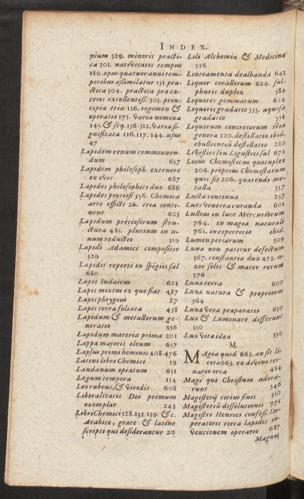 INDEX.
pium 529. minoris practi-
ca 301. necessitatis tempus
380. opus quatuor anni tem-
poribus assimilatur 151. pra-
ctica 304. practica præca-
teris excellentiss. 302. prin-
cipia tria 116. regimen &
operatio 175. varia nomina
145. & seq. 156.
47
Lapidem venum communen-
dum 657
Lapidem philosoph. exruere
ex oviс. 687
Lapides philosophici duo. 686
Lapides pretiosi 556. Chemica
arte effecti 26. ceca conti-
nent 625
Lapidum pretiosorum stru-
ctura 485. plurium in u-
num reductio 319
Lapidis Adamici compositio
520
Lapidis reperti in
680
Lapis Indaicus 623
Lapis mixtus ex quo fiat 487
Lapis phrygius 87
Lapis terra foliata 458
Lapidum & metallorum ge-
neratio 356
Lapidum materia prima 201
Lappa majoris oleum 657
Lapsus primi hominis 408. 476
Latens libro Chemico 19
Laudanum opiatum 651
Legum tempora 154
Leo rubeus, & viridis 608
Liberalitatis Dei primum
exemplar 243
Libri Chemici 128. 132. 139. &c.
Arabico, græce & latine
scripti qui desiderantur 20
Lili Alchemiæ & Medicinæ
576
Lineamenta dealbanda 643
Liquor corallorum 624. sul-
phuris duplex 584
Liquores gemmarum 624
Liquores gradatio 555. aquosa
gradatio 556
Liquorum concretorum tria
genera 220. destillatio ibid.
ebullientium destillatio 220
Locus Chemisticus quotuplex
206. proprius Chemistarum
quis sit 206. quærendi me-
talla 557
Lucta continua 257
Lues Venerea curanda 601
Lullius in luce Mercuriorum
764. in magia naturali
761. in repertorio ibid.
Lumen periarum 309
Luna non patitur defectum
367. constantia dux 473. u-
xor solis & mater rerum
576
Luna terra 600
Luna natura & proprietas
564
Luna vera præparatio 630
Lux & Luminare differunt
150
Lux vita idea 530
M.
MAgia quid 665. an sit li-
cita 665. ex de(sumt ver-
nario orta 484
Magi qui Christum adora-
runt 546
Magisterij totius finis 310
Magisterii dissolutionis 772
Magistri Henrici confess. Im-
peratoris circa lapidis in-
ventionem operatio 687
Magnes